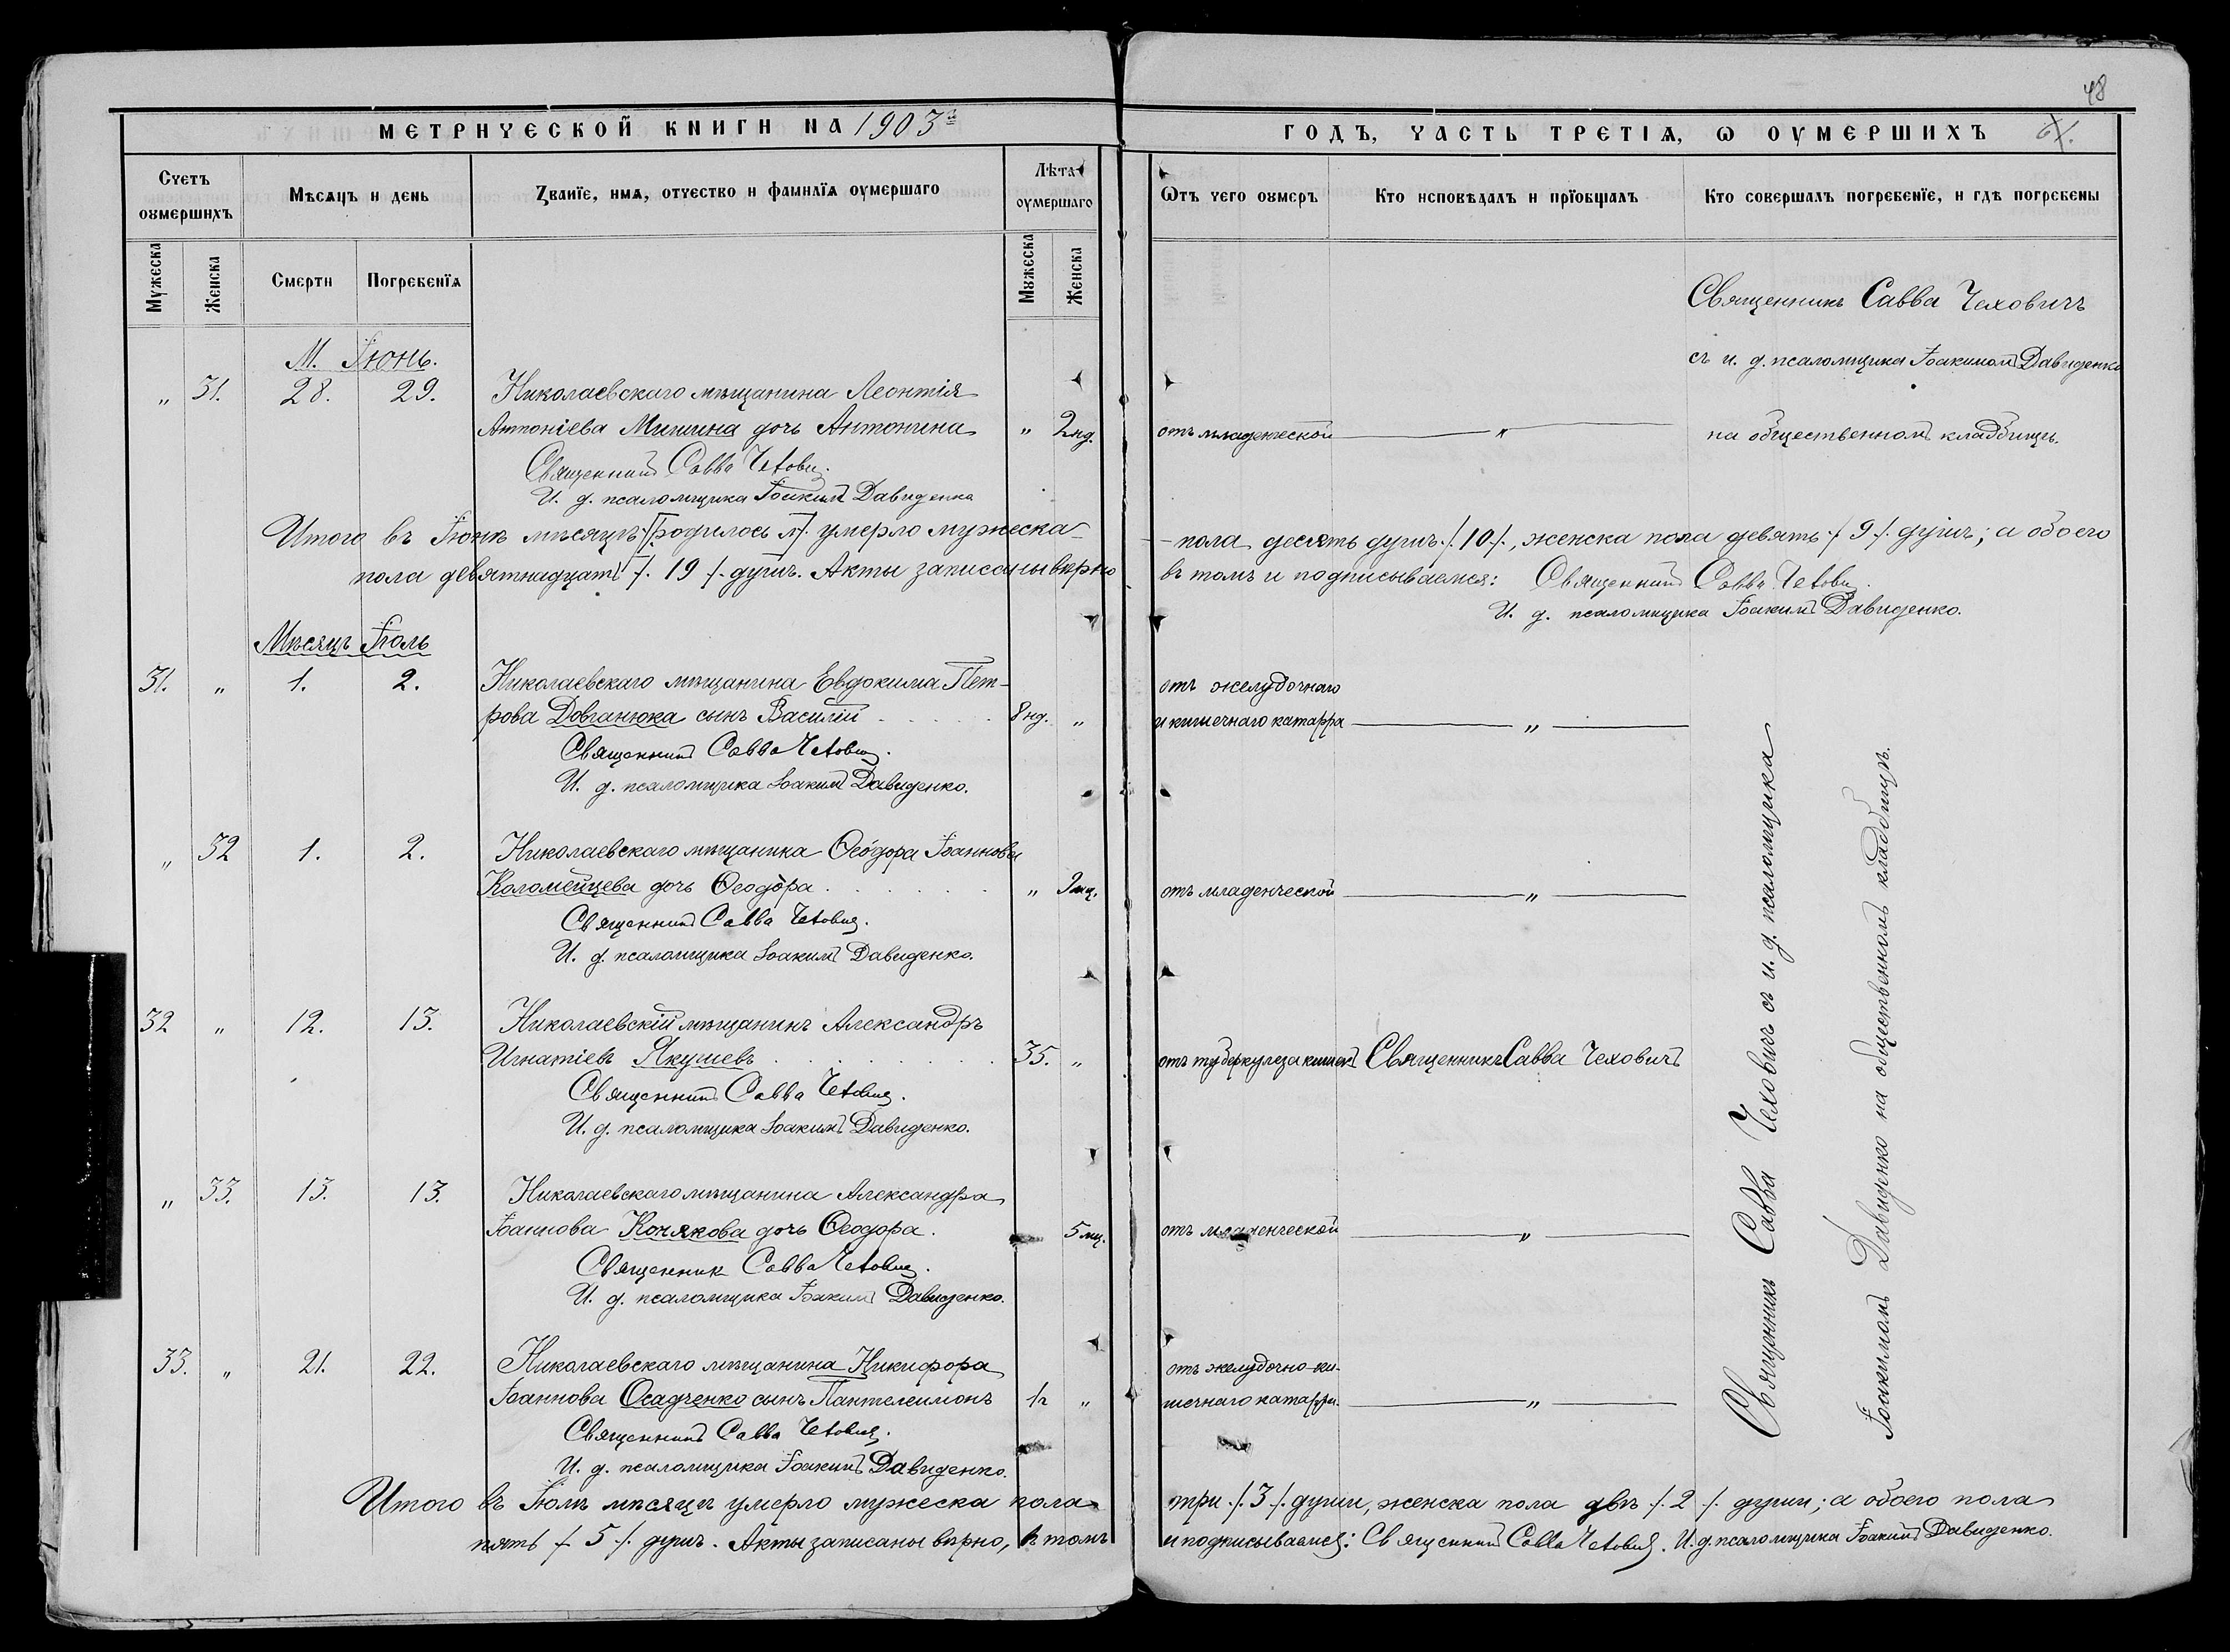 48
МЕТРИЧЕСКОЙ КНИГИ НА 1903й
ГОДЪ, ЧАСТЬ ТРЕТІѦ, Ѡ ОУМЕРШИХЪ
Счетъ оумершихъ
Мѣсяцъ и день
Званїе, имѧ, отчество и фамилїѧ оумершаго
Лѣта оумершаго
Ѿтъ чего оумеръ
Кто исповѣдалъ и прїобщалъ
Кто совершалъ погребенїе, и гдѣ погребены
Мужеска
Женска
Смерти
Погребенїѧ
Мужеска
Женска
Священникъ Савва Чеховичъ
М. Іюнь.
съ и. д. псаломщика Іоакимомъ Давиденко
„ 31. 28. 29. Николаевскаго мѣщанина Леонтія
Антоніева Мишина дочь Антонина „ 2 нд. отъ младенческой „ на общественномъ кладбищѣ.
Священникъ Савва Чеховичъ.
И. д. псаломщика Іоакимъ Давиденко
Итого въ Іюнѣ мѣсяцѣ родилось умерло мужеска
пола десять душъ ./. 10 ./., женска пола девять ./. 9 ./. душъ; а обоего
пола девятнадцать ./. 19 ./. душъ. Акты записаны вѣрно
въ томъ и подписываемся: Священникъ Савва Чеховичъ.
И. д. псаломщика Іоакимъ Давиденко.
Мѣсяцъ Іюль
31. „ 1. 2. Николаевскаго мѣщанина Евдокима Пет-
отъ желудочнаго
рова Довганюка сынъ Василій 8 нд. „ и кишечнаго катарра „
Священникъ Савва Чеховичъ.
И. д. псаломщика Іоакимъ Давиденко.
„ 32 1. 2. Николаевскаго мѣщанина Ѳеодора Іоаннова
Коломейцева дочь Ѳеодора „ 9 мц. отъ младенческой „
Священникъ Савва Чеховичъ.
И. д. псаломщика Іоакимъ Давиденко.
32 „ 12. 13. Николаевскій мѣщанинъ Александръ
Игнатіевъ Якушевъ 35. „ отъ туберкулеза кишекъ Священникъ Савва Чеховичъ
Священникъ Савва Чеховичъ.
И. д. псаломщика Іоакимъ Давиденко.
„ 33. 13. 13. Николаевскаго мѣщанина Александра
Іоаннова Конякова дочь Ѳеодора. 5 мц. отъ младенческой „
Священник Савва Чеховичъ.
И. д. псаломщика Іоакимъ Давиденко.
33. „ 21. 22. Николаевскаго мѣщанина Никифора
отъ желудочно-ки-
Іоаннова Осадченко сынъ Пантелеимонъ „ шечнаго катарра. „
Священникъ Савва Чеховичъ.
И. д. псаломщика Іоакимъ Давиденко.
Священникъ Савва Чеховичъ съ и. д. псаломщика
Іоакимомъ Давиденко на общественномъ кладбищѣ.
Итого въ Іюлѣ мѣсяцѣ умерло мужеска пола
три ./. 3 ./. души, женска пола двѣ ./. 2 ./. души; а обоего пола
пять ./. 5 ./. душъ. Акты записаны вѣрно, въ томъ
и подписываемся: Священникъ Савва Чеховичъ. И. д. псаломщика Іоакимъ Давиденко.